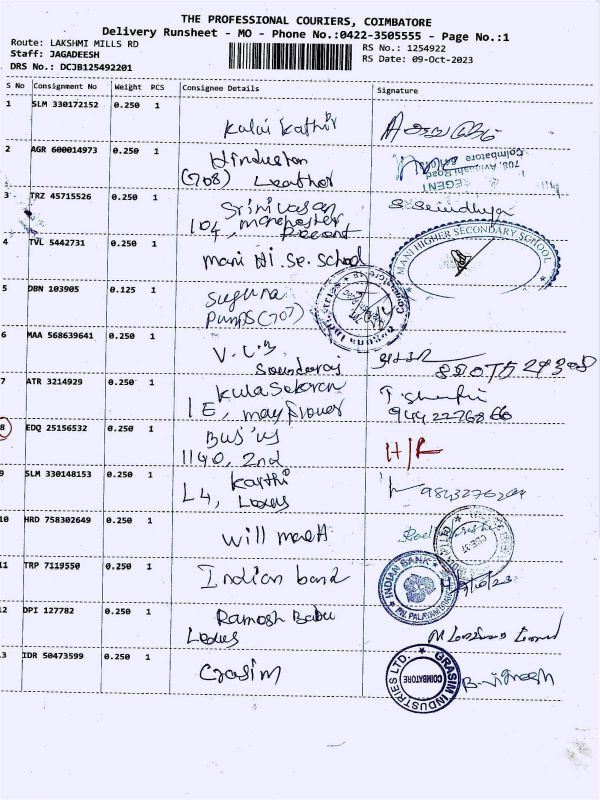 THE PROFESSIONAL COURIERS, COIMBATORE
Delivery Runsheet - MO - Phone No.:0422-3505555 - Page No.:1
Route: LAKSHMI MILLS RD
Staff: JAGADEESH
DRS No.: DCJB125492201
RS No.: 1254922
RS Date: 09-Oct-2023
S No Consignment No Weight PCS Consignee Details Signature
1 SLM 330172152 0.250 1
Kalai Kathir
2 AGR 600014973 0.250 1 Hindustan
(708) Leather
708, Avinashi Road
Coimbatore
REGENT
3 TRZ 45715526 0.250 1 Srinivasan
104, manchester
Regent
4 TVL 5442731 0.250 1 mani Hi. Se. School
MANI HIGHER SECONDARY SCHOOL
5 DBN 103905 0.125 1 Suguna
Pumps (707)
6 MAA 568639641 0.250 1 V. C. B.
Soundaraj
7 ATR 3214929 0.250 1 Kulasekaran
1E, mayflower
8 EDQ 25156532 0.250 1 Bus'us
1140, 2nd
H/R
9 SLM 330148153 0.250 1 Karthi
L4, Lotus
10 HRD 758302649 0.250 1 will mart
11 TRP 7119550 0.250 1 Indian bank
INDIAN BANK
12 DPI 127782 0.250 1 Ramesh Babu
Lotus
13 IDR 50473599 0.250 1 Grasim
GRASIM INDUSTRIES LTD.
COIMBATORE
B. Vignesh